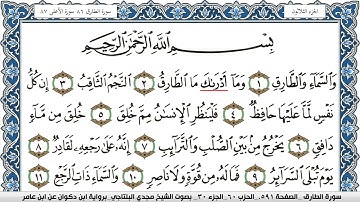 الجزء الثلاثون سورة الطارق ٨٦ سورة الأعلى ٨٧
بِسْمِ اللَّهِ الرَّحْمَٰنِ الرَّحِيمِ
وَالسَّمَاءِ وَالطَّارِقِ ١ وَمَا أَدْرَىٰكَ مَا الطَّارِقُ ٢ النَّجْمُ الثَّاقِبُ ٣ إِن كُلُّ
نَفْسٍ لَّمَّا عَلَيْهَا حَافِظٌ ٤ فَلْيَنظُرِ الْإِنسَٰنُ مِمَّ خُلِقَ ٥ خُلِقَ مِن مَّاءٍ
دَافِقٍ ٦ يَخْرُجُ مِنۢ بَيْنِ الصُّلْبِ وَالتَّرَائِبِ ٧ إِنَّهُ عَلَىٰ رَجْعِهِ لَقَادِرٌ ٨
يَوْمَ تُبْلَى السَّرَائِرُ ٩ فَمَا لَهُ مِن قُوَّةٍ وَلَا نَاصِرٍ ١٠ وَالسَّمَاءِ ذَاتِ الرَّجْعِ ١١
سورة الطارق الصفحة ٥٩١ الحزب ٦٠ الجزء ٣٠ بصوت الشيخ مجدي البلتاجي برواية ابن ذكوان عن ابن عامر